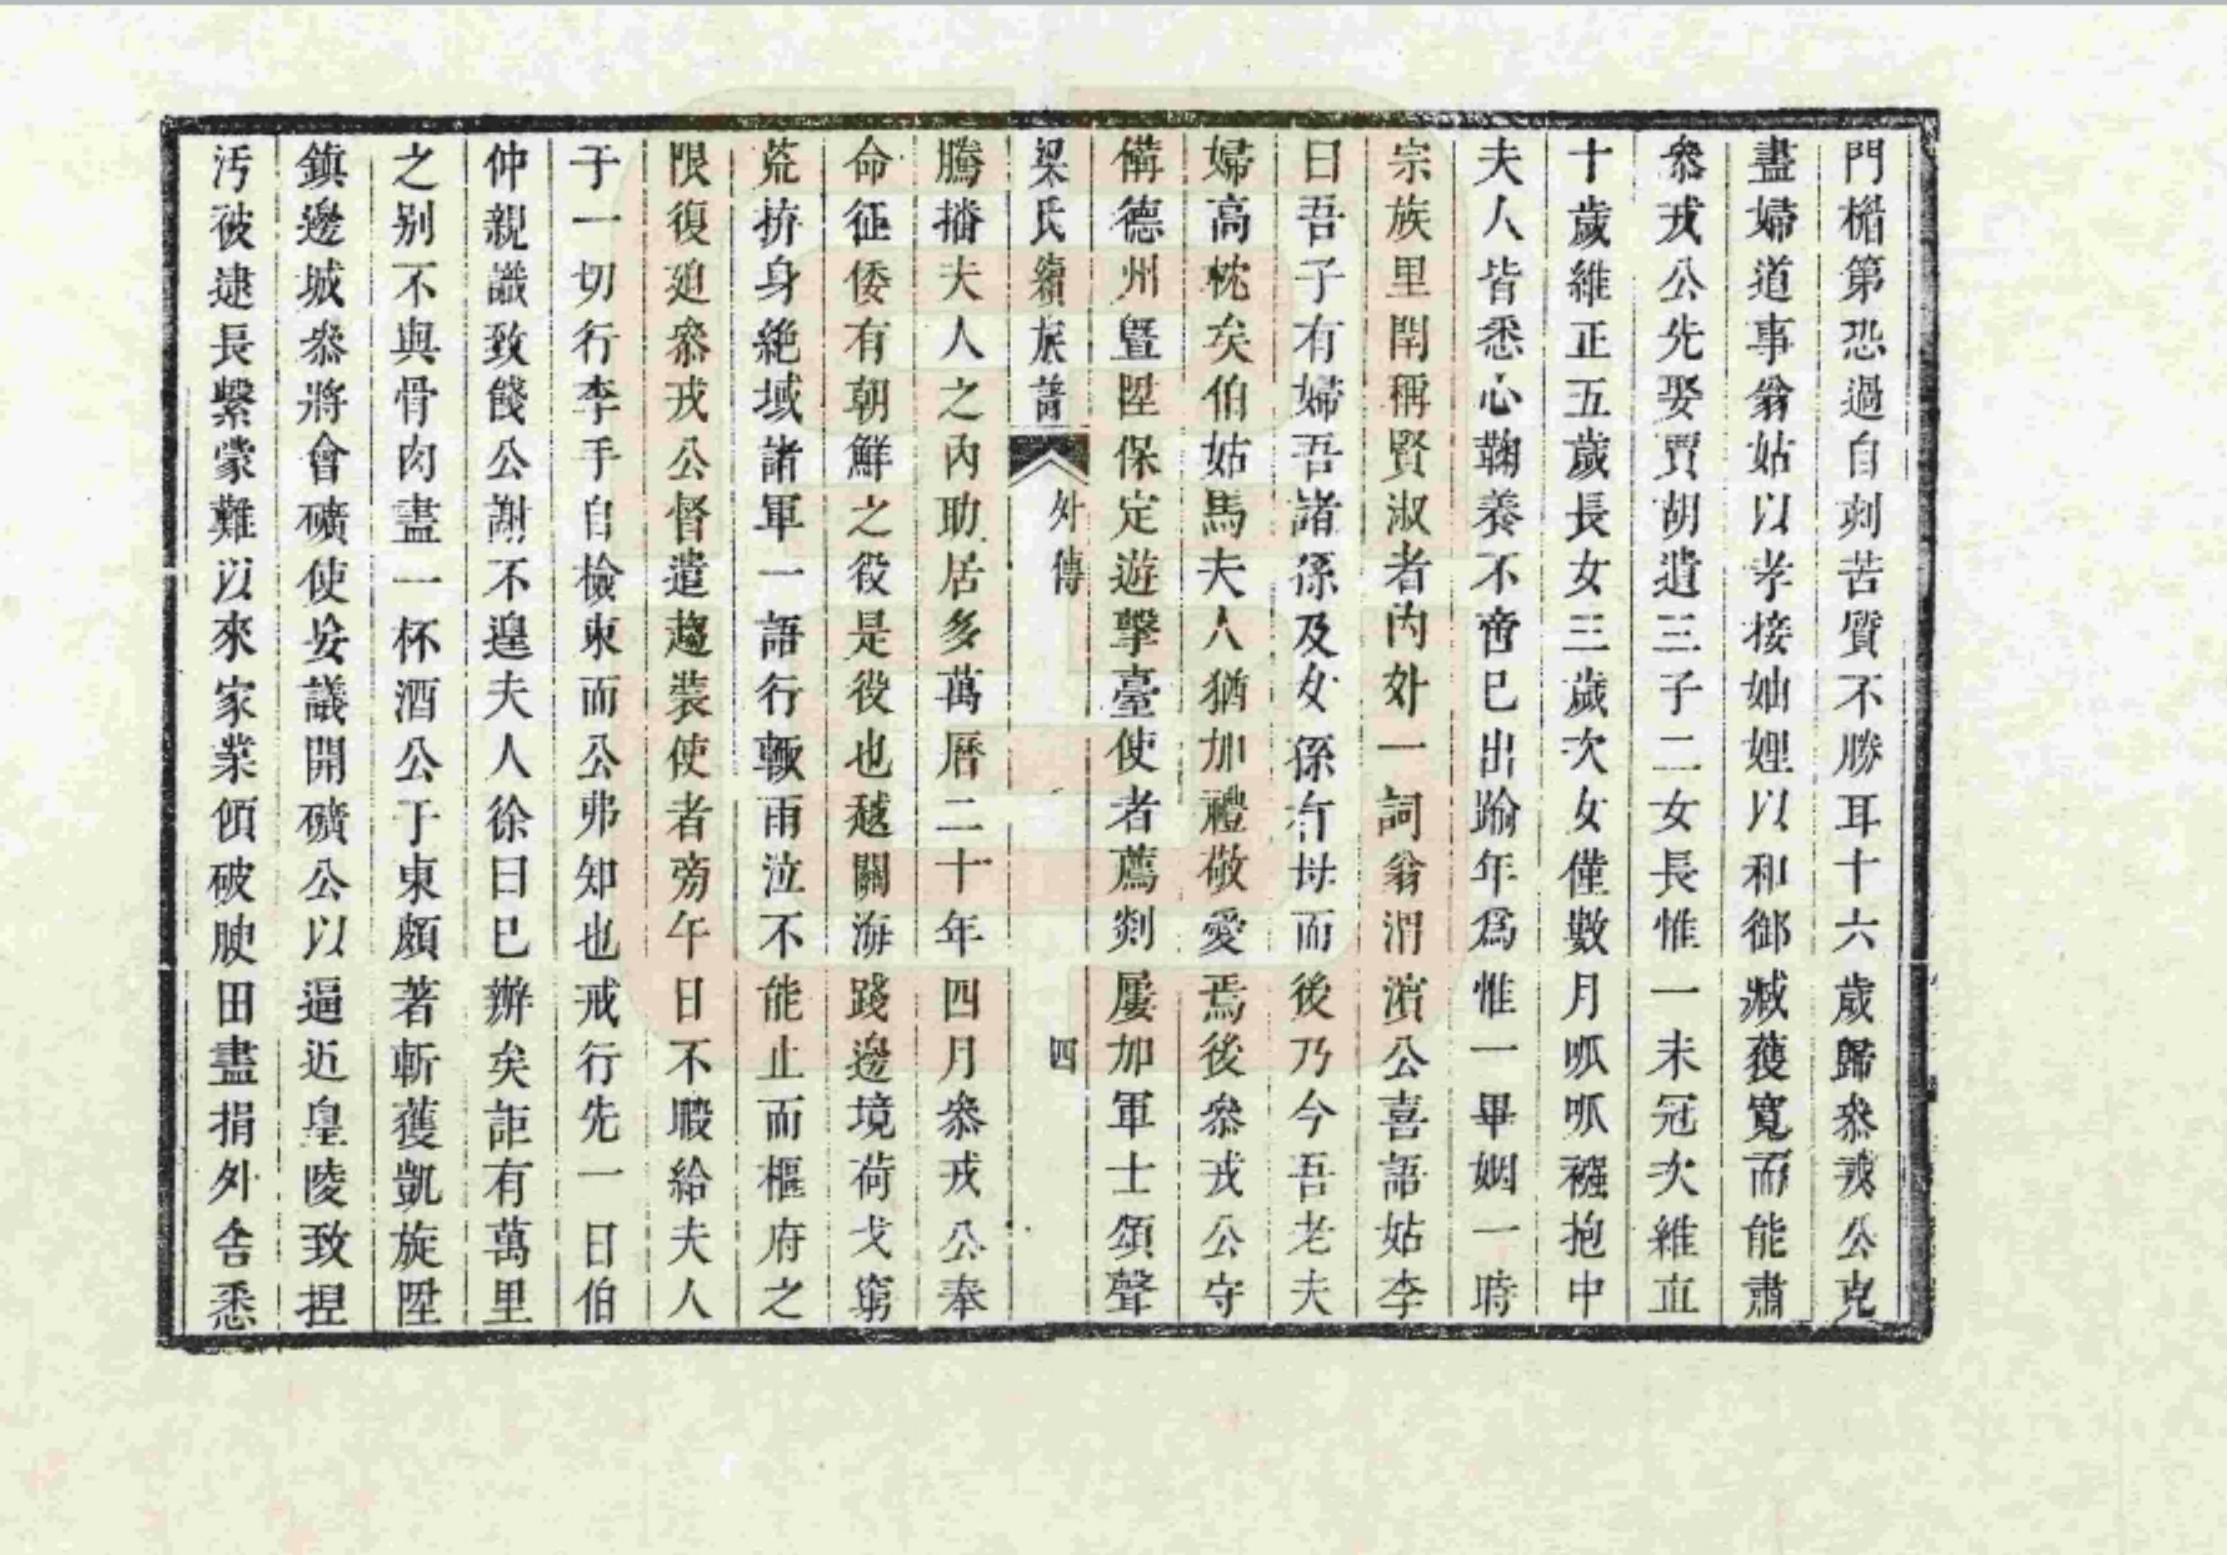 門楷第恐過自刻苦質不勝耳十六歲歸叅戎公克
盡婦道事翁姑以孝接妯娌以和御臧獲寬而能肅
叅戎公先娶賈胡遺三子二女長惟一未冠次維直
十歲維正五歲長女三歲次女僅數月呱呱襁抱中
夫人皆悉心鞠養不啻已出踰年爲惟一畢姻一時
宗族里閈稱賢淑者內外一詞翁渭濱公喜語姑李
曰吾子有婦吾諸孫及女孫有母而後乃今吾老夫
婦高枕矣伯姑馬夫人猶加禮敬愛焉後叅戎公守
備德州暨陞保定遊擊臺使者薦剡屢加軍士頌聲
梁氏續族譜 外傳 四
騰播夫人之內助居多萬曆二十年四月叅戎公奉
命征倭有朝鮮之役是役也越關海踐邊境荷戈窮
荒拚身絶域諸軍一語行輒雨泣不能止而樞府之
限復廹叅戎公督遣趨裝使者旁午日不暇給夫人
于一切行李手自檢束而公弗知也戒行先一日伯
仲親識致餞公謝不遑夫人徐曰已辦矣詎有萬里
之别不與骨肉盡一杯酒公于東頗著斬獲凱旋陞
鎮邊城叅將會礦使妄議開礦公以逼近皇陵致捏
汚被逮長繫蒙難以來家業傾破腴田盡捐外舍悉